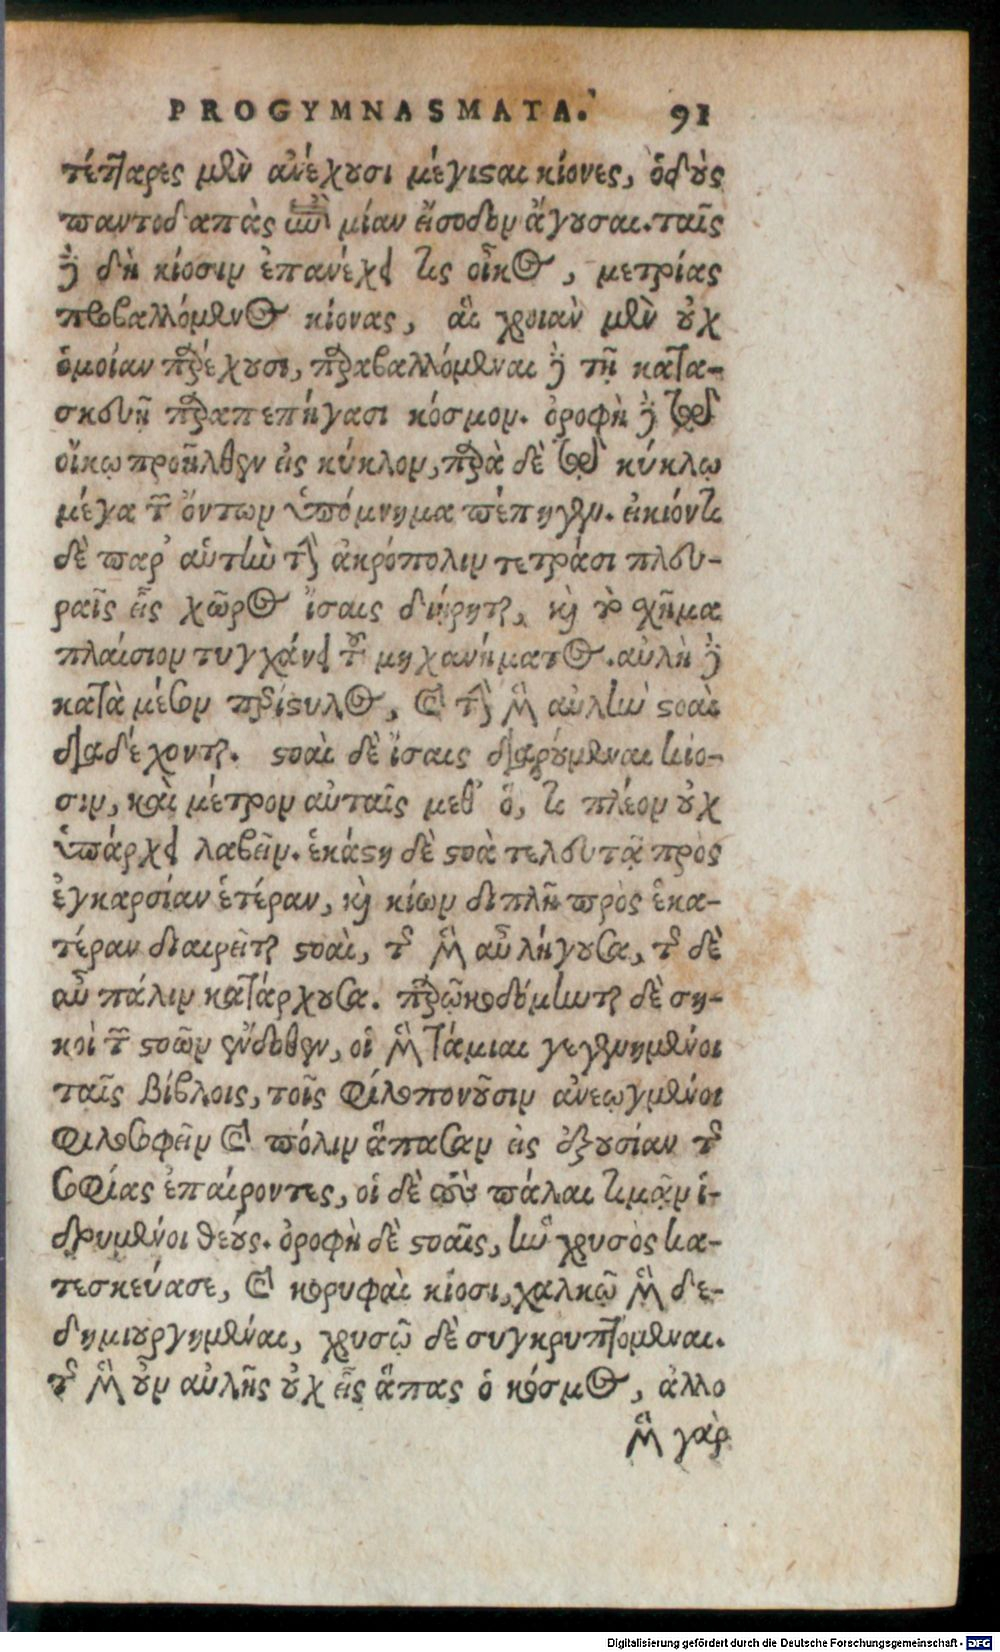 PROGYMNASMATA. 91
τέτταρες μὲν ἀνέχουσι μέγισται κίονες, ὁδοὺς
παντοδαπὰς ἐπὶ μίαν εἴσοδον ἄγουσαι. ταῖς
δὲ δὴ κίοσιν ἐπανέχει τις οἶκος, μετρίας
προβαλλόμενος κίονας, αἳ χροιὰν μὲν οὐχ
ὁμοίαν παρέχουσι, παραβαλλόμεναι δὲ τῇ κατα-
σκευῇ παραπεπήγασι κόσμον. ὀροφὴ δὲ τοῦ
οἴκῳ προῆλθεν εἰς κύκλον, παρὰ δὲ τῷ κύκλῳ
μέγα τῶν ὄντων ὑπόμνημα πέπηγεν. εἰσιόντι
δὲ παρ' αὐτὴν τὴν ἀκρόπολιν τετράσι πλευ-
ραῖς εἷς χῶρος ἴσαις διῄρηται, καὶ τὸ σχῆμα
πλαίσιον τυγχάνει τοῦ μηχανήματος. αὐλὴ δὲ
κατὰ μέσον περίστυλος, καὶ τὴν μὲν αὐλὴν στοαὶ
διαδέχονται. στοαὶ δὲ ἴσαις διαιρούμεναι κίο-
σιν, καὶ μέτρον αὐταῖς μεθ' ὃ, τι πλέον οὐχ
ὑπάρχει λαβεῖν. ἑκάστη δὲ στοὰ τελευτᾷ πρὸς
ἐγκαρσίαν ἑτέραν, καὶ κίων διπλῆ πρὸς ἑκα-
τέραν διαιρεῖται στοαὶ, τῆς μὲν αὖ λήγουσα, τῆς δὲ
αὖ πάλιν κατάρχουσα. παρῳκοδόμηνται δὲ ση-
κοὶ τῶν στοῶν ἔνδοθεν, οἱ μὲν ταμίαι γεγενημένοι
ταῖς βίβλοις, τοῖς φιλοπονοῦσιν ἀνεῳγμένοι
φιλοσοφεῖν καὶ πόλιν ἅπασαν εἰς ἐξουσίαν τῆς
σοφίας ἐπαίροντες, οἱ δὲ τοὺς πάλαι τιμᾷν ἱ-
δρυμένοι θεούς. ὀροφὴ δὲ στοαῖς, ἣν χρυσὸς κα-
τεσκεύασε, καὶ κορυφαὶ κίοσι, χαλκῷ μὲν δε-
δημιουργημέναι, χρυσῷ δὲ συγκρυπτόμεναι.
τῆς μὲν οὖν αὐλῆς οὐχ εἷς ἅπας ὁ κόσμος, ἄλλο
μὲν γὰρ
Digitalisierung gefördert durch die Deutsche Forschungsgemeinschaft - DFG